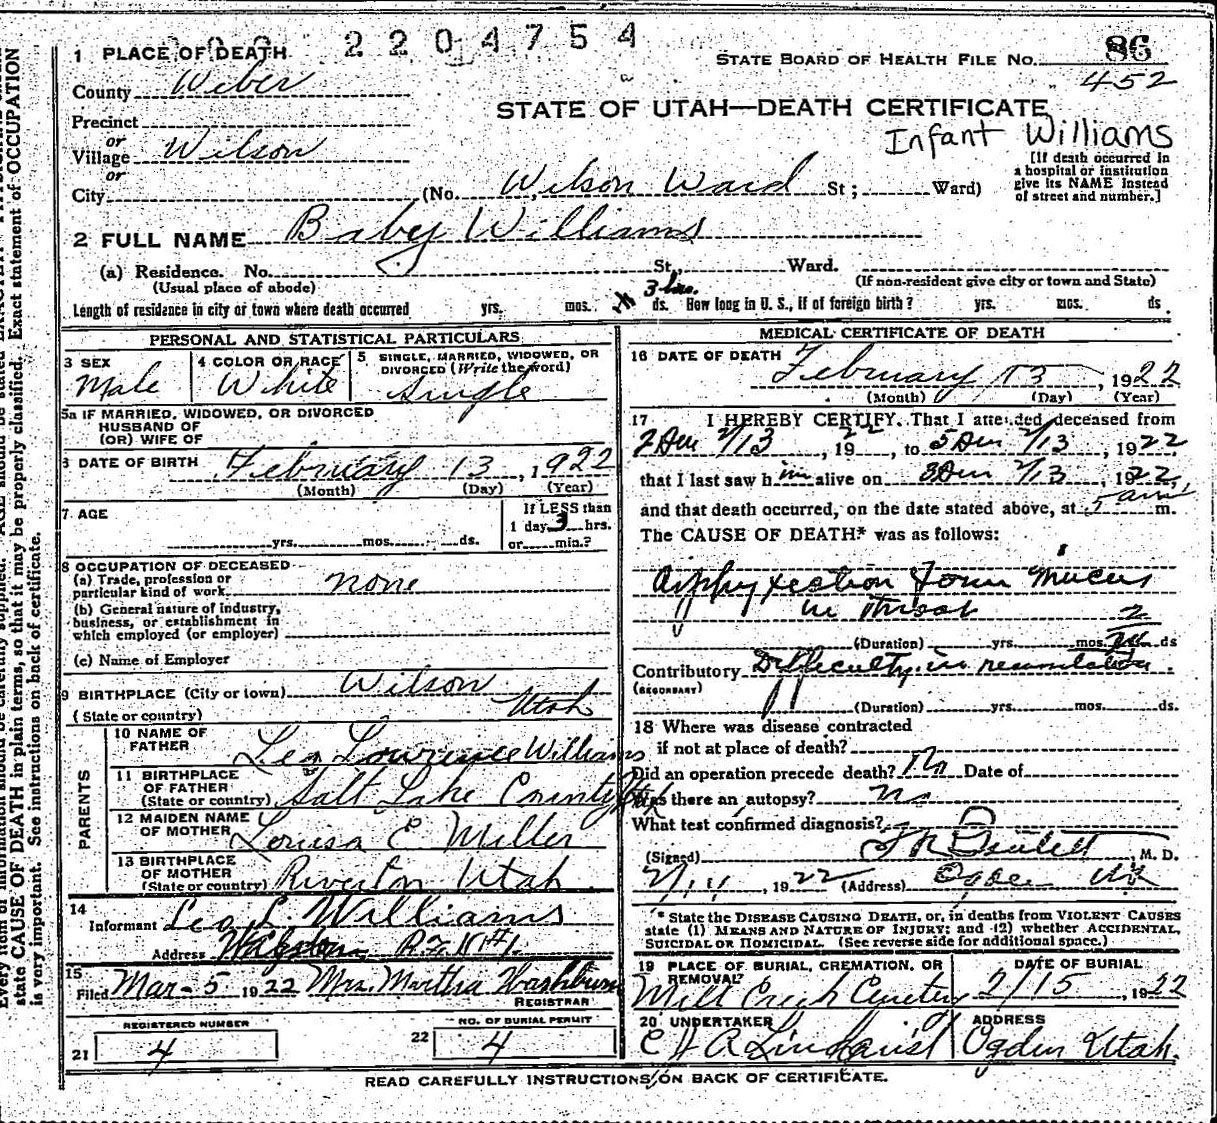 2204754
1 PLACE OF DEATH
STATE BOARD OF HEALTH FILE NO. 86
452
County Weber
STATE OF UTAH—DEATH CERTIFICATE
Precinct
Infant Williams
or
Village Wilson
or
City (No. Wilson Ward St; Ward)
[If death occurred in
a hospital or institution
give its NAME instead
of street and number.]
2 FULL NAME Baby Williams
(a) Residence. No. St, Ward.
(Usual place of abode) (If non-resident give city or town and State)
3 hrs.
Length of residence in city or town where death occurred yrs. mos. ds. How long in U. S., if of foreign birth? yrs. mos. ds.
PERSONAL AND STATISTICAL PARTICULARS
3 SEX
Male
4 COLOR OR RACE
White
5 SINGLE, MARRIED, WIDOWED, OR
DIVORCED (Write the word)
Single
5a IF MARRIED, WIDOWED, OR DIVORCED
HUSBAND OF
(OR) WIFE OF
DATE OF BIRTH February 13, 1922
(Month) (Day) (Year)
7. AGE
yrs. mos. ds.
If LESS than
1 day 3 hrs.
or min.?
8 OCCUPATION OF DECEASED
(a) Trade, profession or
particular kind of work none
(b) General nature of industry,
business, or establishment in
which employed (or employer)
(c) Name of Employer
9 BIRTHPLACE (City or town) Wilson
(State or country) Utah
PARENTS
10 NAME OF
FATHER Leo Lowrence Williams
11 BIRTHPLACE
OF FATHER
(State or country) Salt Lake County Utah
12 MAIDEN NAME
OF MOTHER Louisa E Miller
13 BIRTHPLACE
OF MOTHER
(State or country) Riverton Utah
14
Informant Leo L. Williams
Address
15
Filed Mar-5 1922 Mrs. Martha Washburn
REGISTRAR
REGISTERED NUMBER
21 4
NO. OF BURIAL PERMIT
22 4
MEDICAL CERTIFICATE OF DEATH
16 DATE OF DEATH February 13, 1922
(Month) (Day) (Year)
17 I HEREBY CERTIFY, That I attended deceased from
2/13, 1922, to 2/13, 1922
that I last saw him alive on 2/13, 1922,
and that death occurred, on the date stated above, at 5 am m.
The CAUSE OF DEATH* was as follows:
Asphyxiation from Mucus
in throat
(Duration) yrs. mos. ds
Contributory Difficulty in
(SECONDARY)
(Duration) yrs. mos. ds.
18 Where was disease contracted
if not at place of death?
Did an operation precede death? No Date of
Was there an autopsy? no
What test confirmed diagnosis?
(Signed) M. D.
2/11, 1922 (Address) Ogden Ut
* State the DISEASE CAUSING DEATH, or, in deaths from VIOLENT CAUSES
state (1) MEANS AND NATURE OF INJURY; and (2) whether ACCIDENTAL,
SUICIDAL OR HOMICIDAL. (See reverse side for additional space.)
19 PLACE OF BURIAL, CREMATION, OR
REMOVAL
Mill Creek Cemetery
DATE OF BURIAL
2/15, 1922
20 UNDERTAKER
Lindquist
ADDRESS
Ogden Utah.
READ CAREFULLY INSTRUCTIONS ON BACK OF CERTIFICATE.
state CAUSE OF DEATH in plain terms, so that it may be properly classified. Exact statement of OCCUPATION
is very important. See instructions on back of certificate.